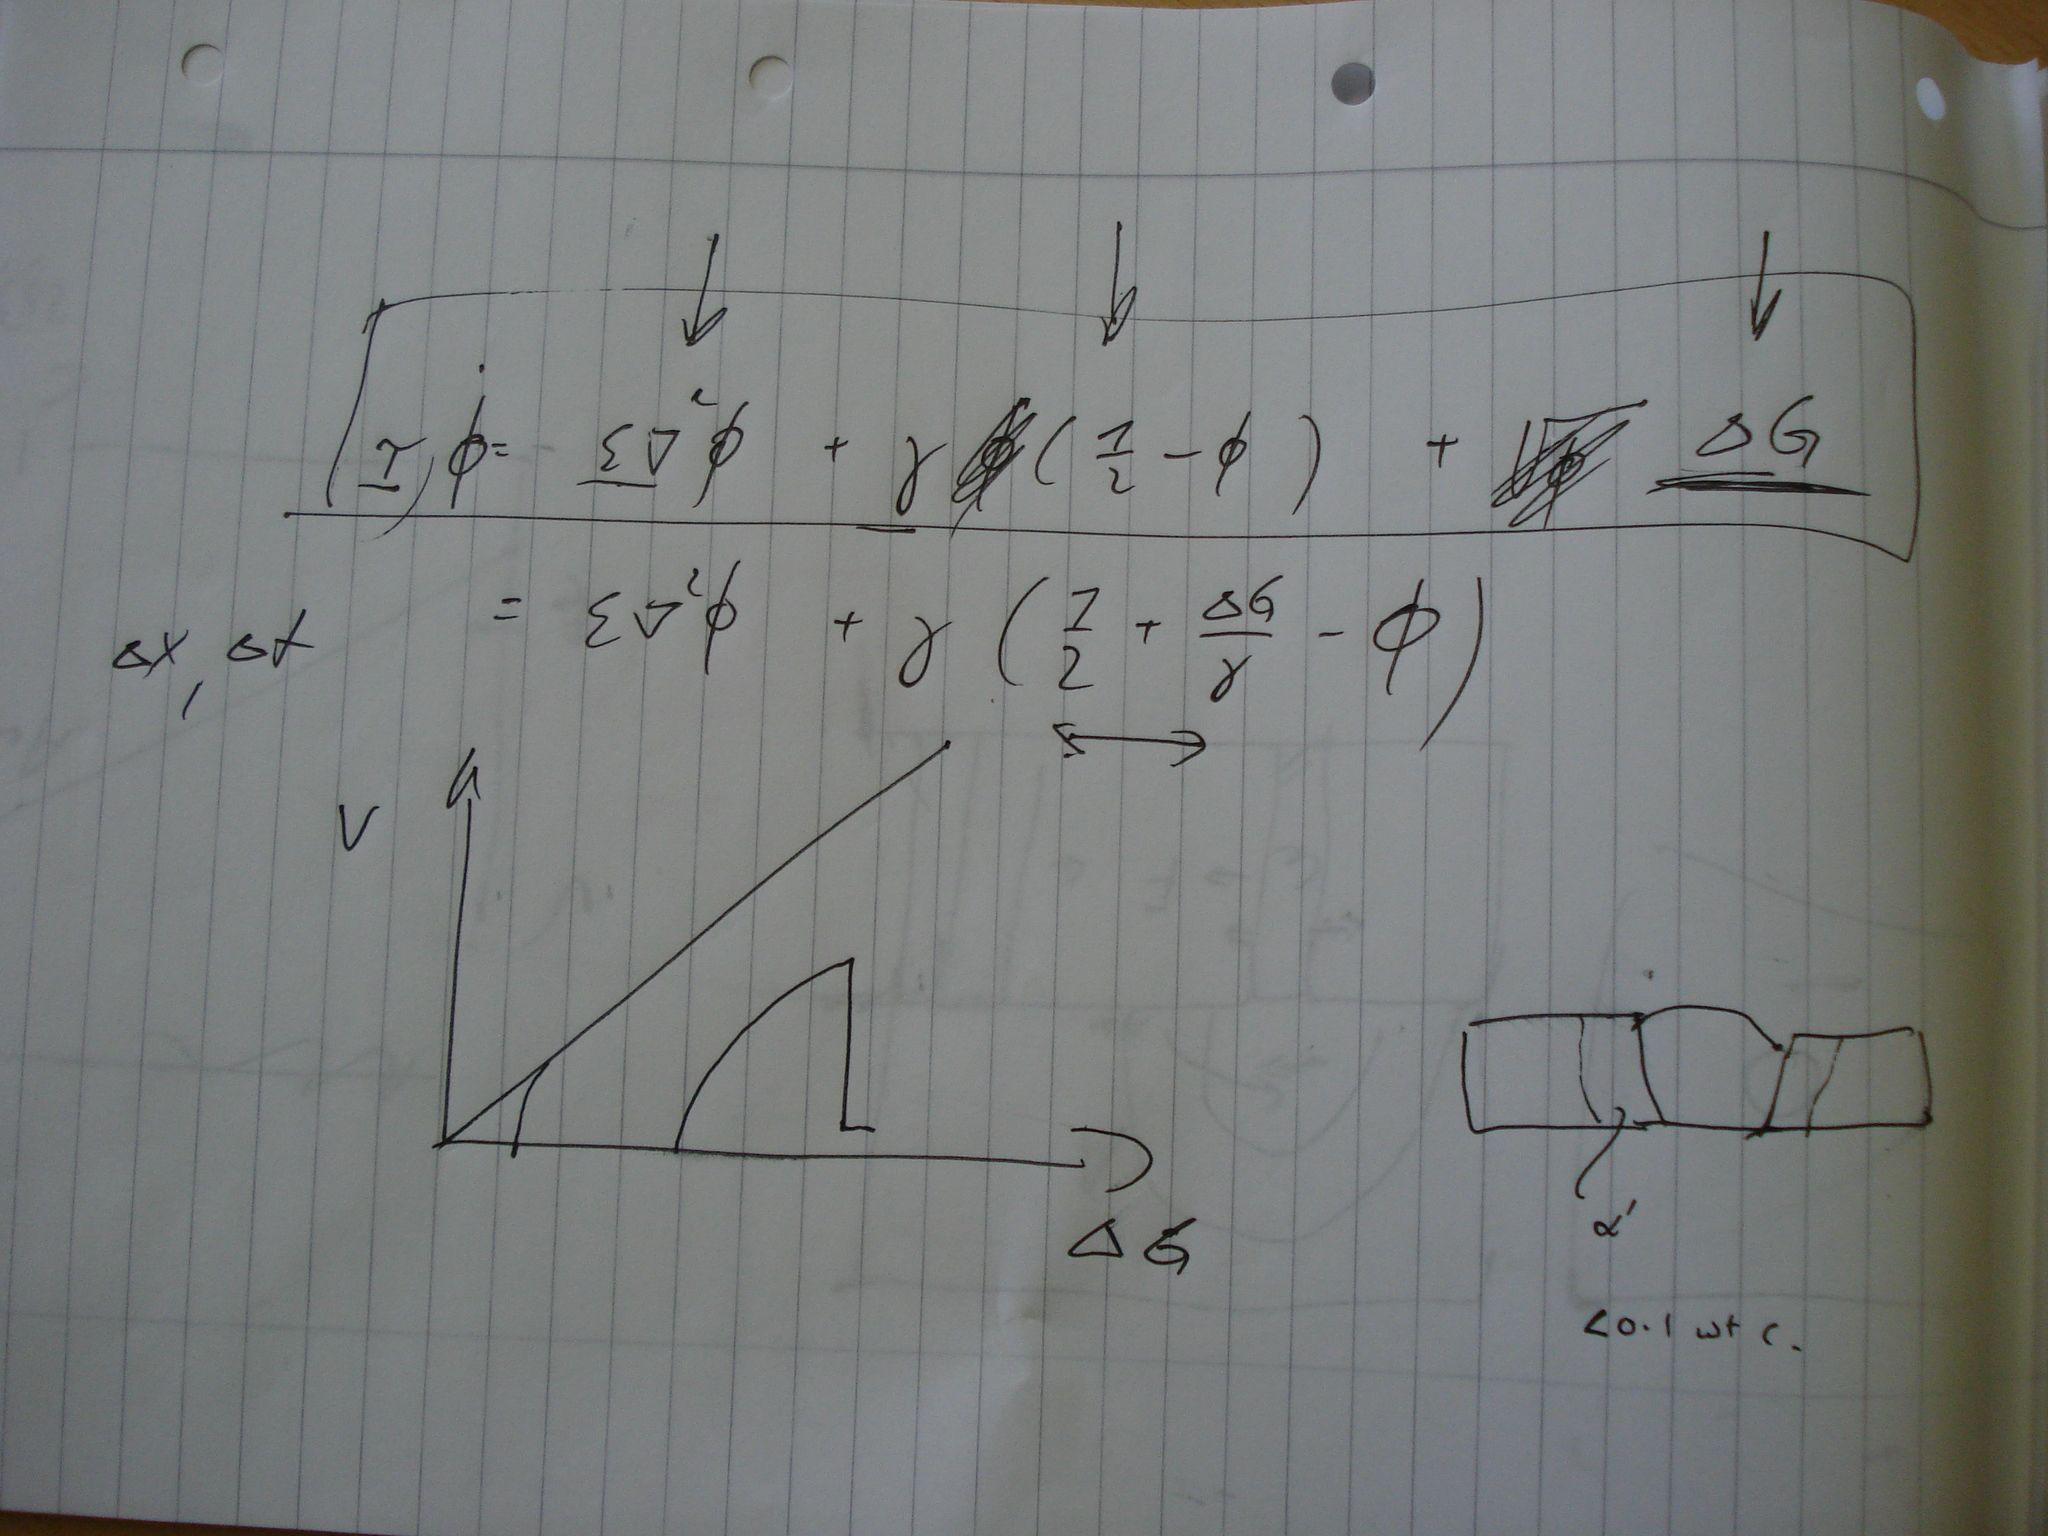 τ φ̇ = ε∇²φ + γ (1/2 − φ) + ΔG
= ε∇²φ + γ (1/2 + ΔG/γ − φ)
Δx, Δt
V
ΔG
α'
<0.1 wt C.